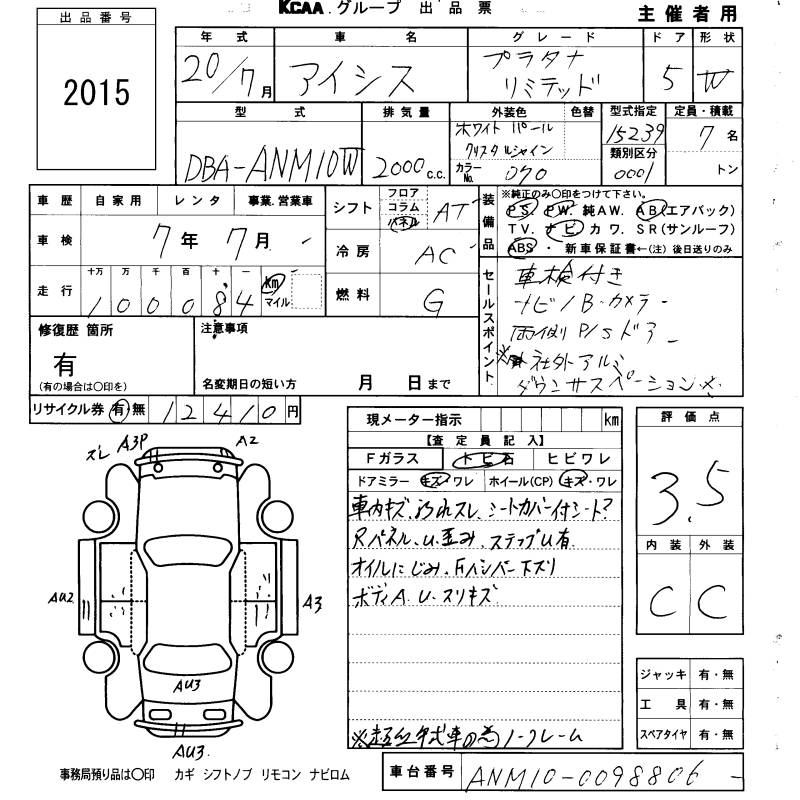 KCAA. グループ 出品票
主催者用
出品番号
2015
年式 車名 グレード ドア 形状
20/7月 アイシス プラタナ リミテッド 5 W
型式 排気量 外装色 色替 型式指定 定員・積載
DBA-ANM10W 2000c.c. ホワイトパール クリスタルシャイン 15239 7名
カラーNo. 070 類別区分 0001 トン
車歴 自家用 レンタ 事業.営業車
車検 7年7月
走行 十万 万 千 百 十 一 km マイル
100084
シフト フロア コラム パネル AT
冷房 AC
燃料 G
装備品
※純正のみ〇印をつけて下さい。
PS. PW. 純AW. AB(エアバック)
TV. ナビ カワ. SR(サンルーフ)
ABS・新車保証書←(注)後日送りのみ
セールスポイント
車検付き
ナビ/B・カメラー
両側P/Sドアー
※社外アルミ
ダウンサスペーション※
修復歴 箇所
有
(有の場合は〇印を)
注意事項
名変期日の短い方 月 日まで
リサイクル券 有 無 12410円
現メーター指示 km
【査定員記入】
Fガラス トビ石 ヒビワレ
ドアミラー キズ・ワレ ホイール(CP) キズ・ワレ
車内キズ、汚れスレ、シートカバー付シート?
Rパネル、U、歪み、ステップU有
オイルにじみ、Fバンパー下ズリ
ボディA.U.スリキズ
※超低年式車の為ノークレーム
評価点
3.5
内装 外装
C C
ジャッキ 有・無
工具 有・無
スペアタイヤ 有・無
ズレ A3P A2
AU2 A3
AU3
AU3.
事務局預り品は〇印 カギ シフトノブ リモコン ナビロム
車台番号 ANM10-0098806